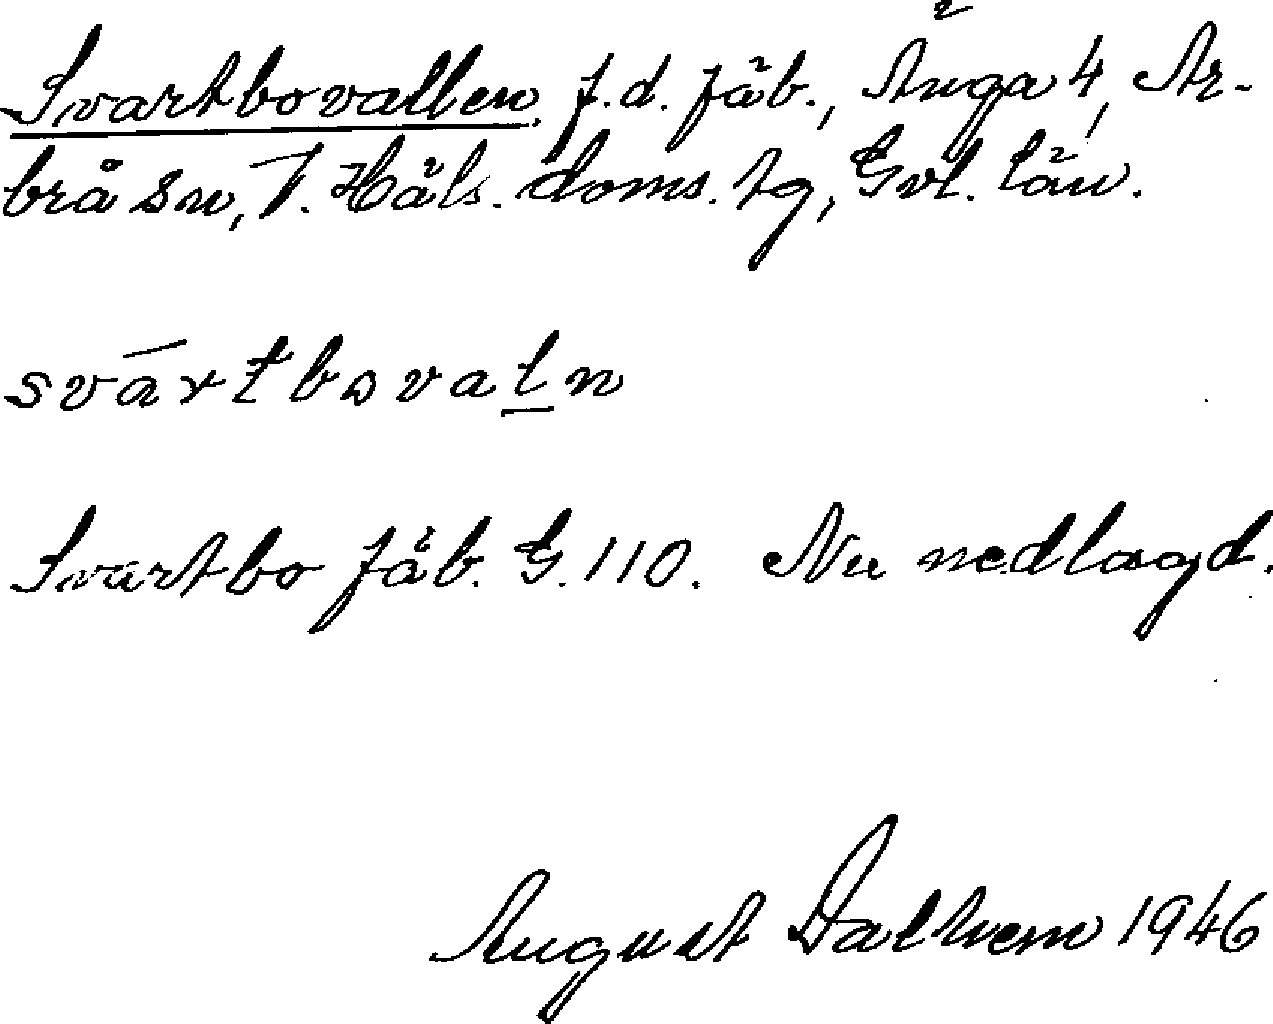 Svartbovallen, f.d. fäb., Änga 4, Ar-
brå sn, V. Häls. doms. tg, Gvl. län.
svártbovaḻn
Svartbo fäb. G. 110. Nu nedlagd.
August Dalhem 1946